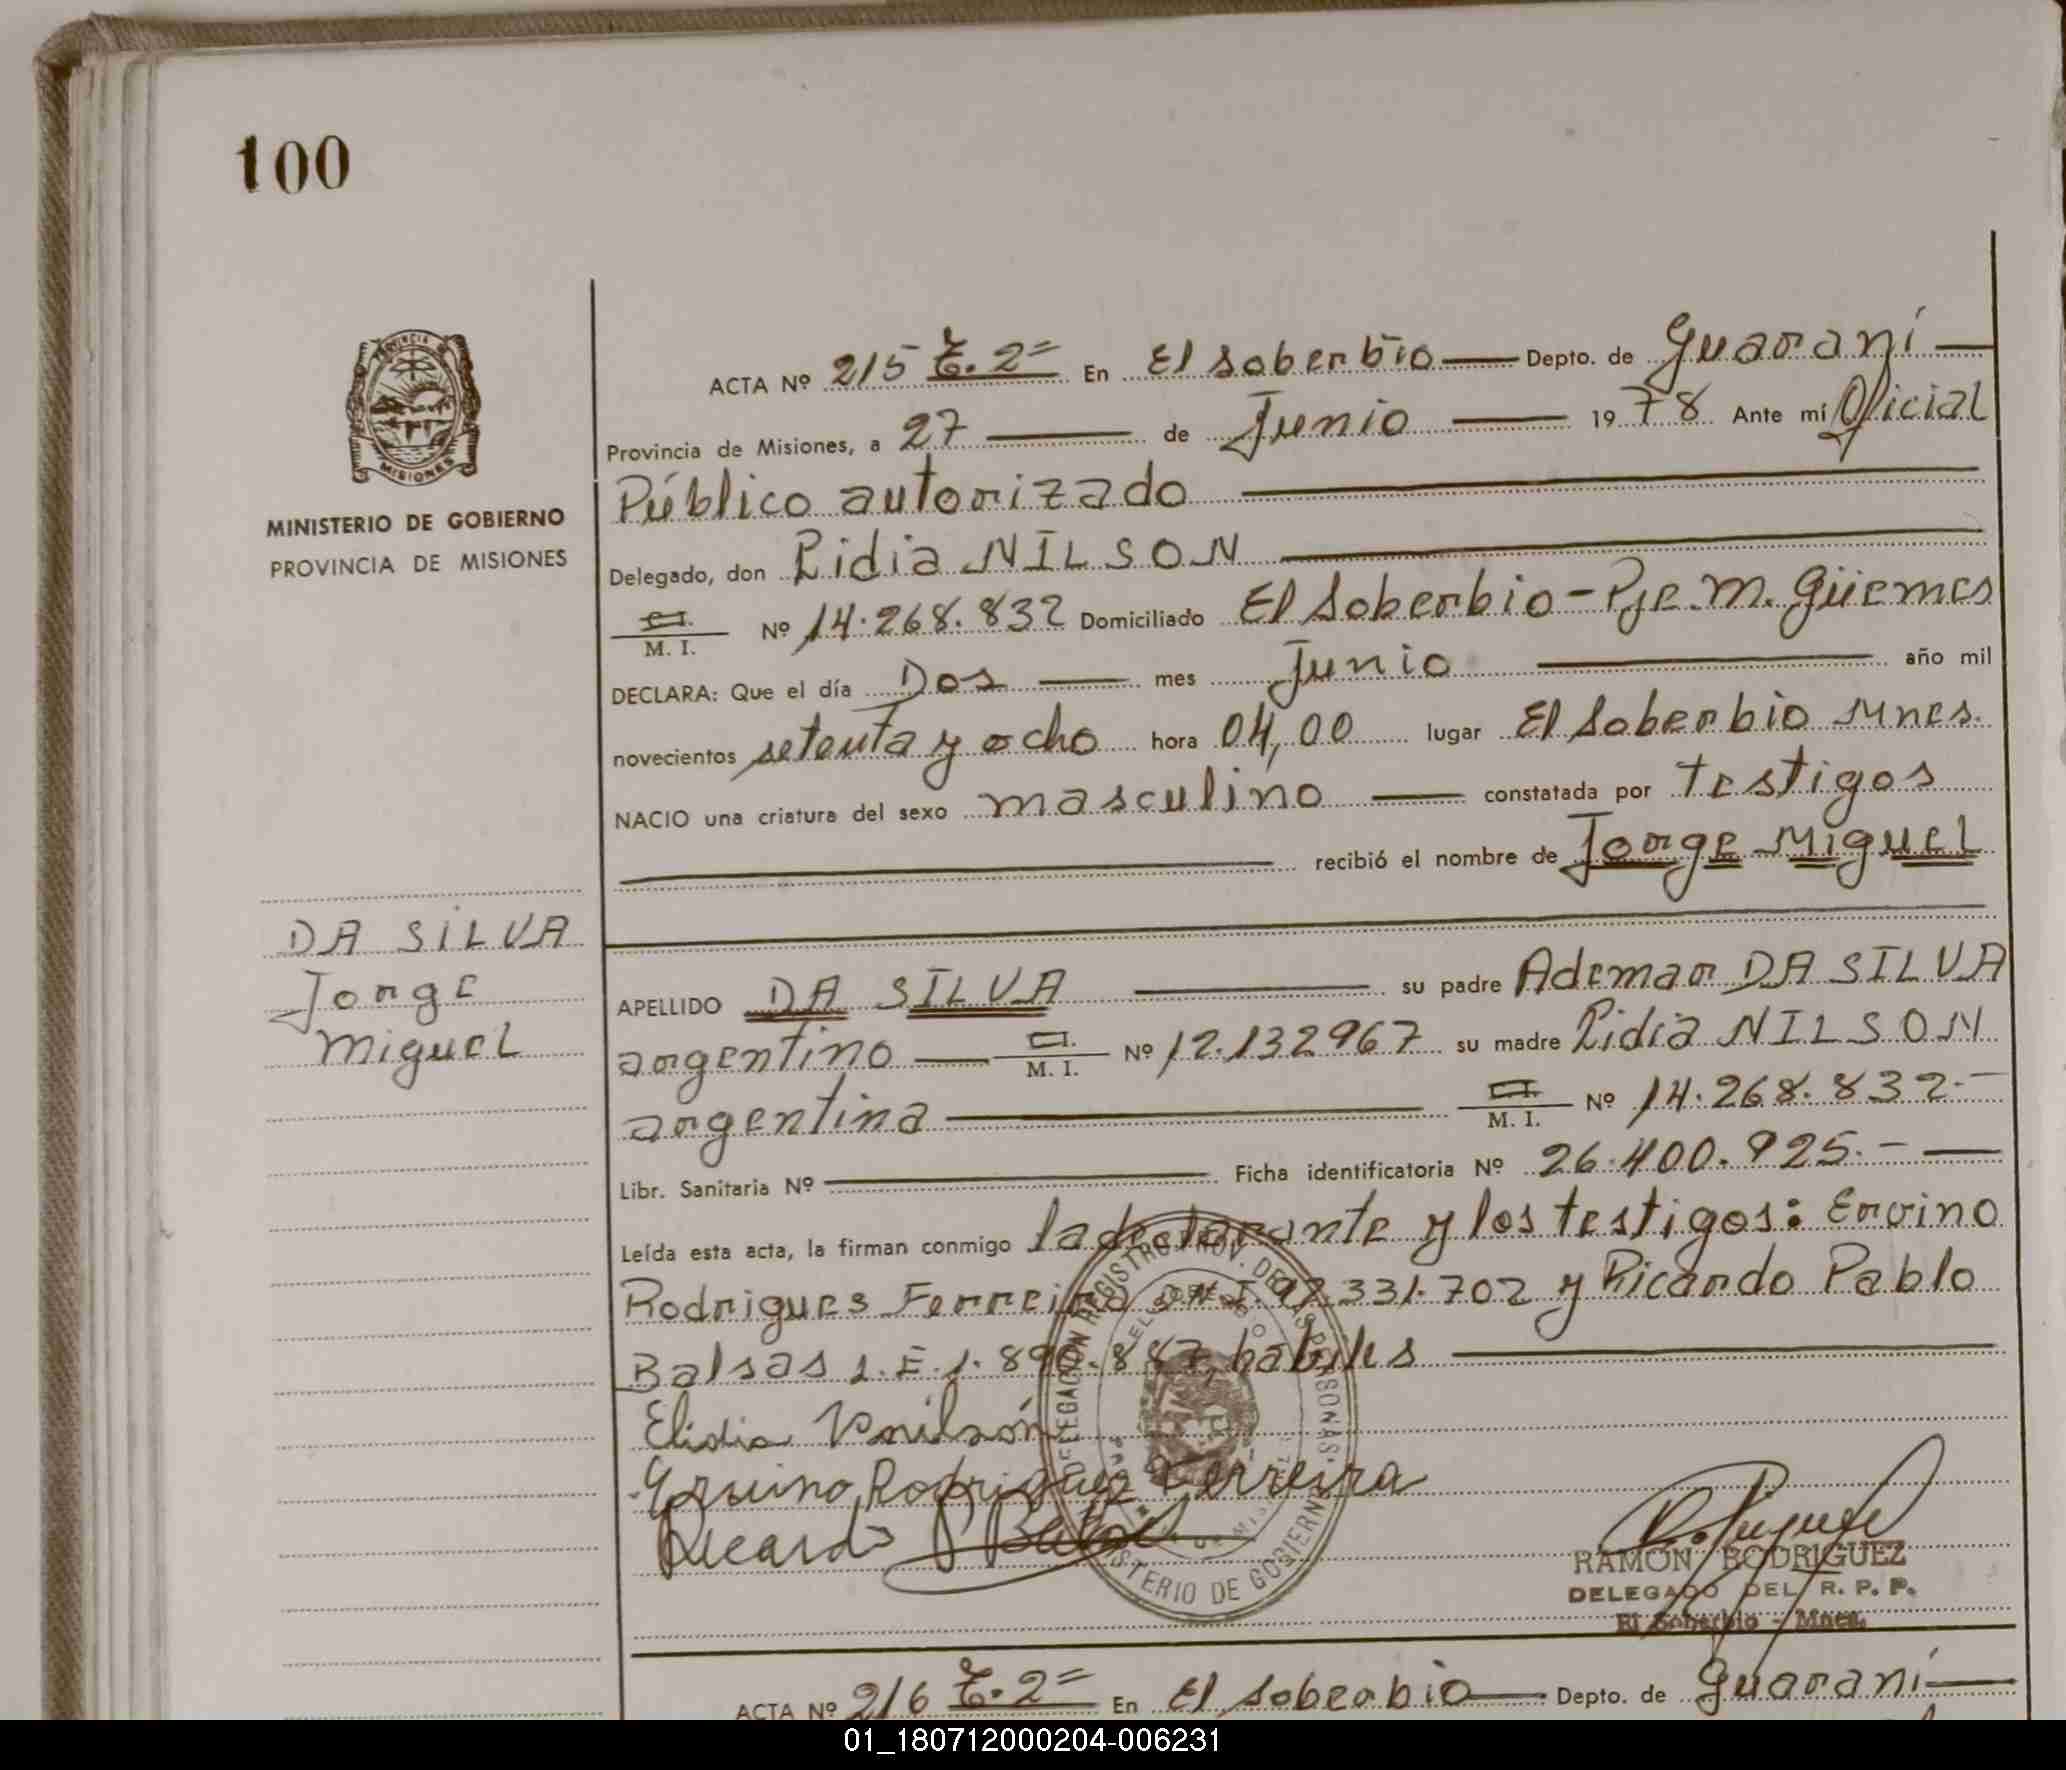 100
PROVINCIA DE
MISIONES
MINISTERIO DE GOBIERNO
PROVINCIA DE MISIONES
DA SILVA
Jorge
Miguel
ACTA Nº 215 T. 2= En El Soberbio Depto. de Guaraní
Provincia de Misiones, a 27 de Junio 1978 Ante mí Oficial
Público autorizado
Delegado, don Lidia NILSON
C.I. M. I. Nº 14.268.832 Domiciliado El Soberbio - Pje. M. Güemes
DECLARA: Que el día Dos mes Junio año mil
novecientos setenta y ocho hora 04,00 lugar El Soberbio Mnes.
NACIO una criatura del sexo masculino constatada por testigos
recibió el nombre de Jorge Miguel
APELLIDO DA SILVA su padre Ademar DA SILVA
argentino C.I. M. I. Nº 12.132967 su madre Lidia NILSON
argentina C.I. M. I. Nº 14.268.832.-
Libr. Sanitaria Nº Ficha identificatoria Nº 26.400.925.-
Leída esta acta, la firman conmigo la declarante y los testigos: Ervino
Rodrigues Ferreira D.N.I. 92.331.702 y Ricardo Pablo
Balsas L.E. 1.890.887, hábiles
Elidia
Rodriguez Ferreira
Ricardo P
DELEGACION REGISTRO PROV. DE LAS PERSONAS.
EL SOBERBIO
MINISTERIO DE GOBIERNO
RAMON RODRIGUEZ
DELEGADO DEL R. P. P.
El Soberbio - Mnes.
ACTA Nº 216 T. 2= En El Soberbio Depto. de Guaraní
01_180712000204-006231